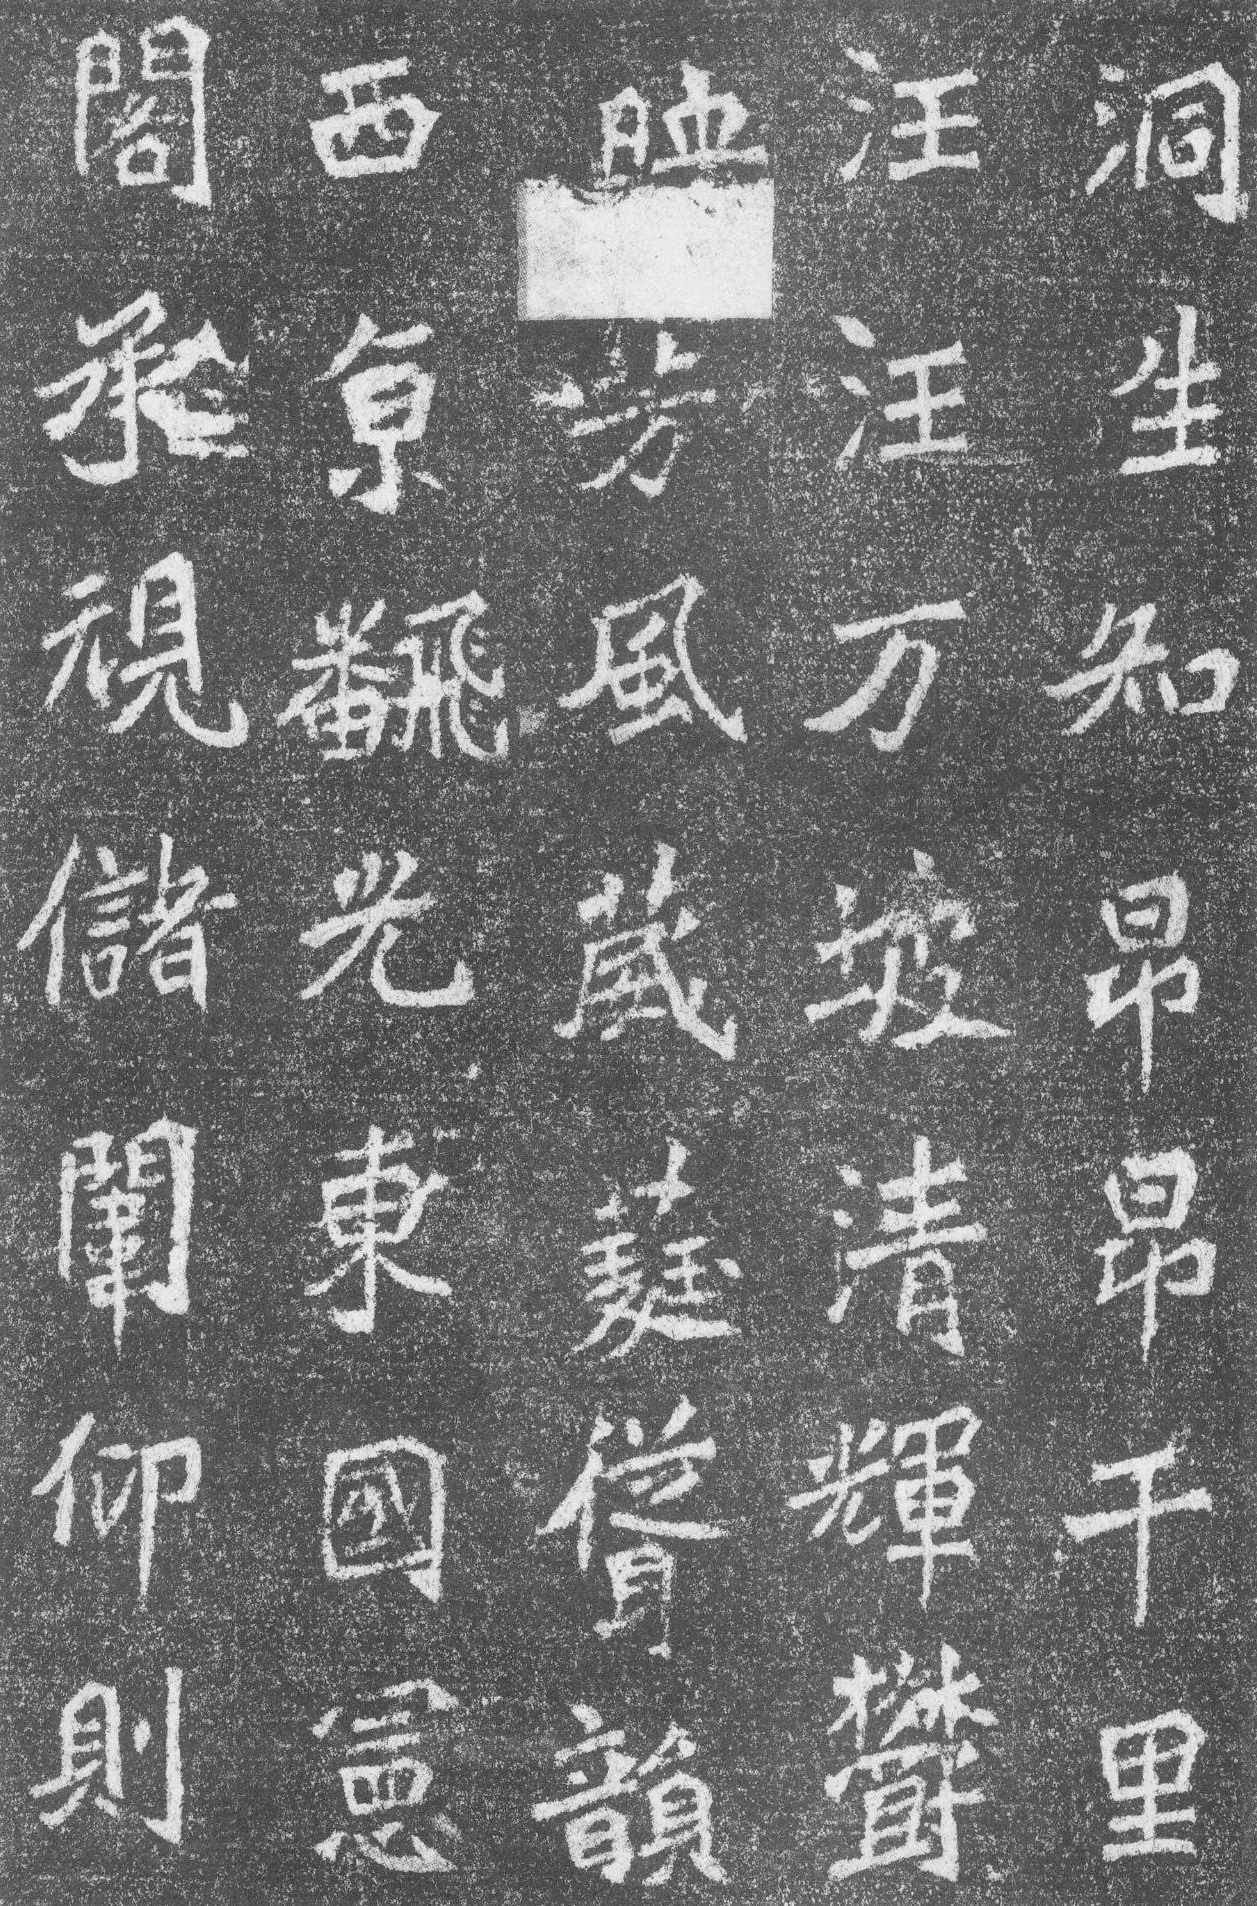 洞生知昂昂千里
汪汪万清輝鬱
映芳風葳蕤聳韻
西京飜光東國憲
閣承視儲闈仰則